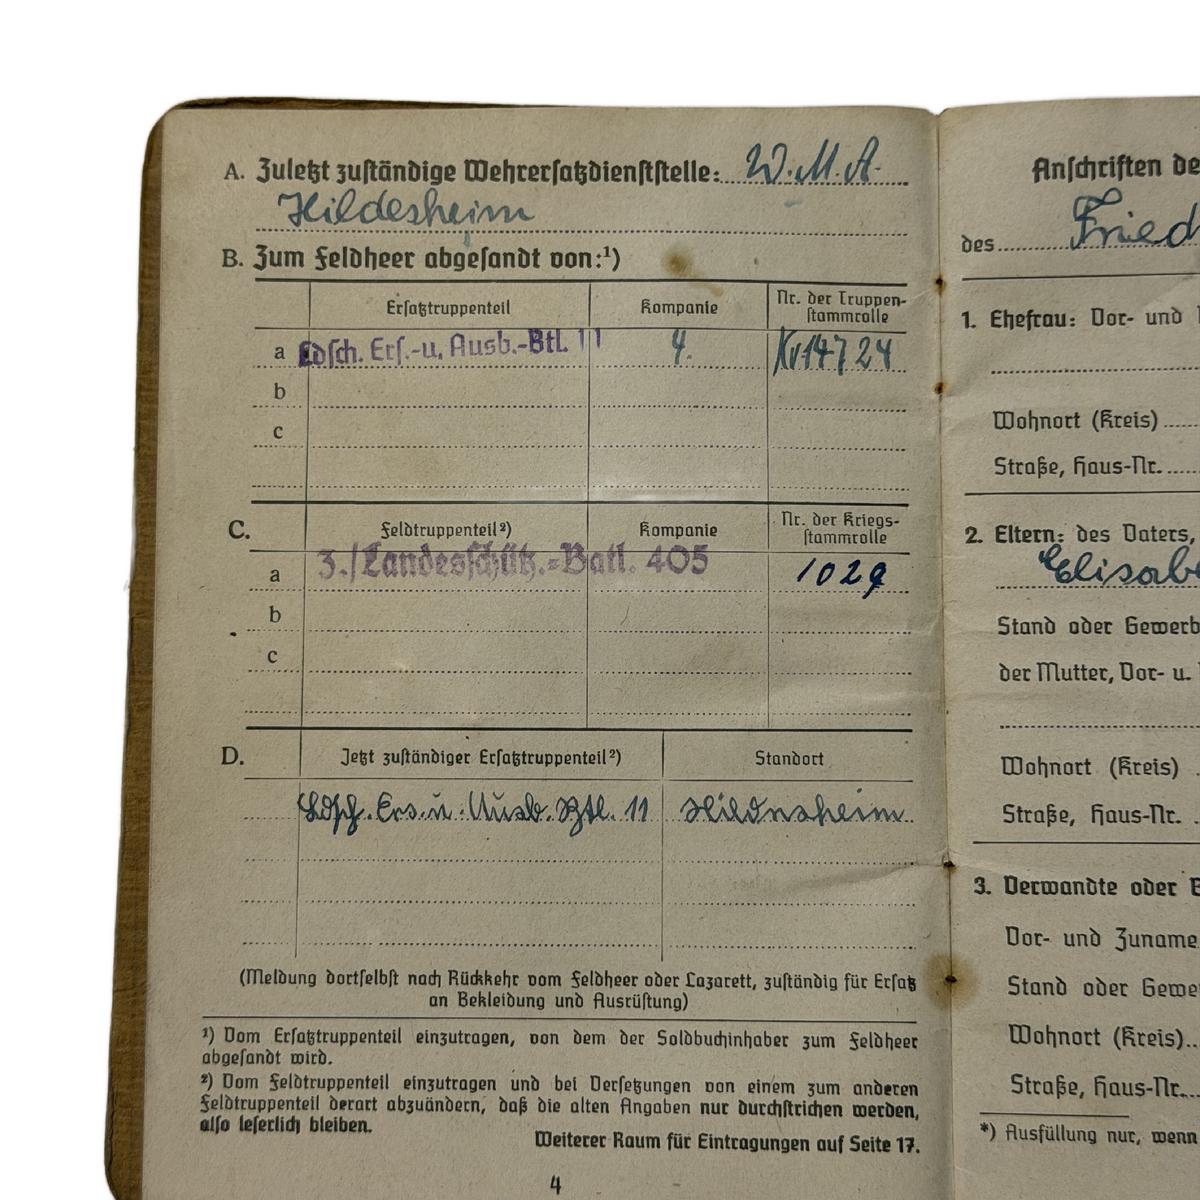 A. Zuletzt zuständige Wehrersatzdienststelle: W.M.A.
Hildesheim
B. Zum Feldheer abgesandt von:¹)
Ersatztruppenteil Kompanie Nr. der Truppen-
stammrolle
a Ldsch. Ers.-u. Ausb.-Btl. 11 4. Kv 14724
b
c
C. Feldtruppenteil²) Kompanie Nr. der Kriegs-
stammrolle
a 3./Landesschütz.-Batl. 405 1029
b
c
D. Jetzt zuständiger Ersatztruppenteil²) Standort
Ldsch. Ers. u. Ausb. Btl. 11 Hildesheim
(Meldung dortselbst nach Rückkehr vom Feldheer oder Lazarett, zuständig für Ersatz
an Bekleidung und Ausrüstung)
¹) Vom Ersatztruppenteil einzutragen, von dem der Soldbuchinhaber zum Feldheer
abgesandt wird.
²) Vom Feldtruppenteil einzutragen und bei Versetzungen von einem zum anderen
Feldtruppenteil derart abzuändern, daß die alten Angaben nur durchstrichen werden,
also leserlich bleiben.
Weiterer Raum für Eintragungen auf Seite 17.
4
Anschriften de
des Fried
1. Ehefrau: Vor- und
Wohnort (Kreis)
Straße, Haus-Nr.
2. Eltern: des Vaters,
Elisabe
Stand oder Gewerb
der Mutter, Vor- u.
Wohnort (Kreis)
Straße, Haus-Nr.
3. Verwandte oder
Vor- und Zuname
Stand oder Gewe
Wohnort (Kreis)
Straße, Haus-Nr.
*) Ausfüllung nur, wenn